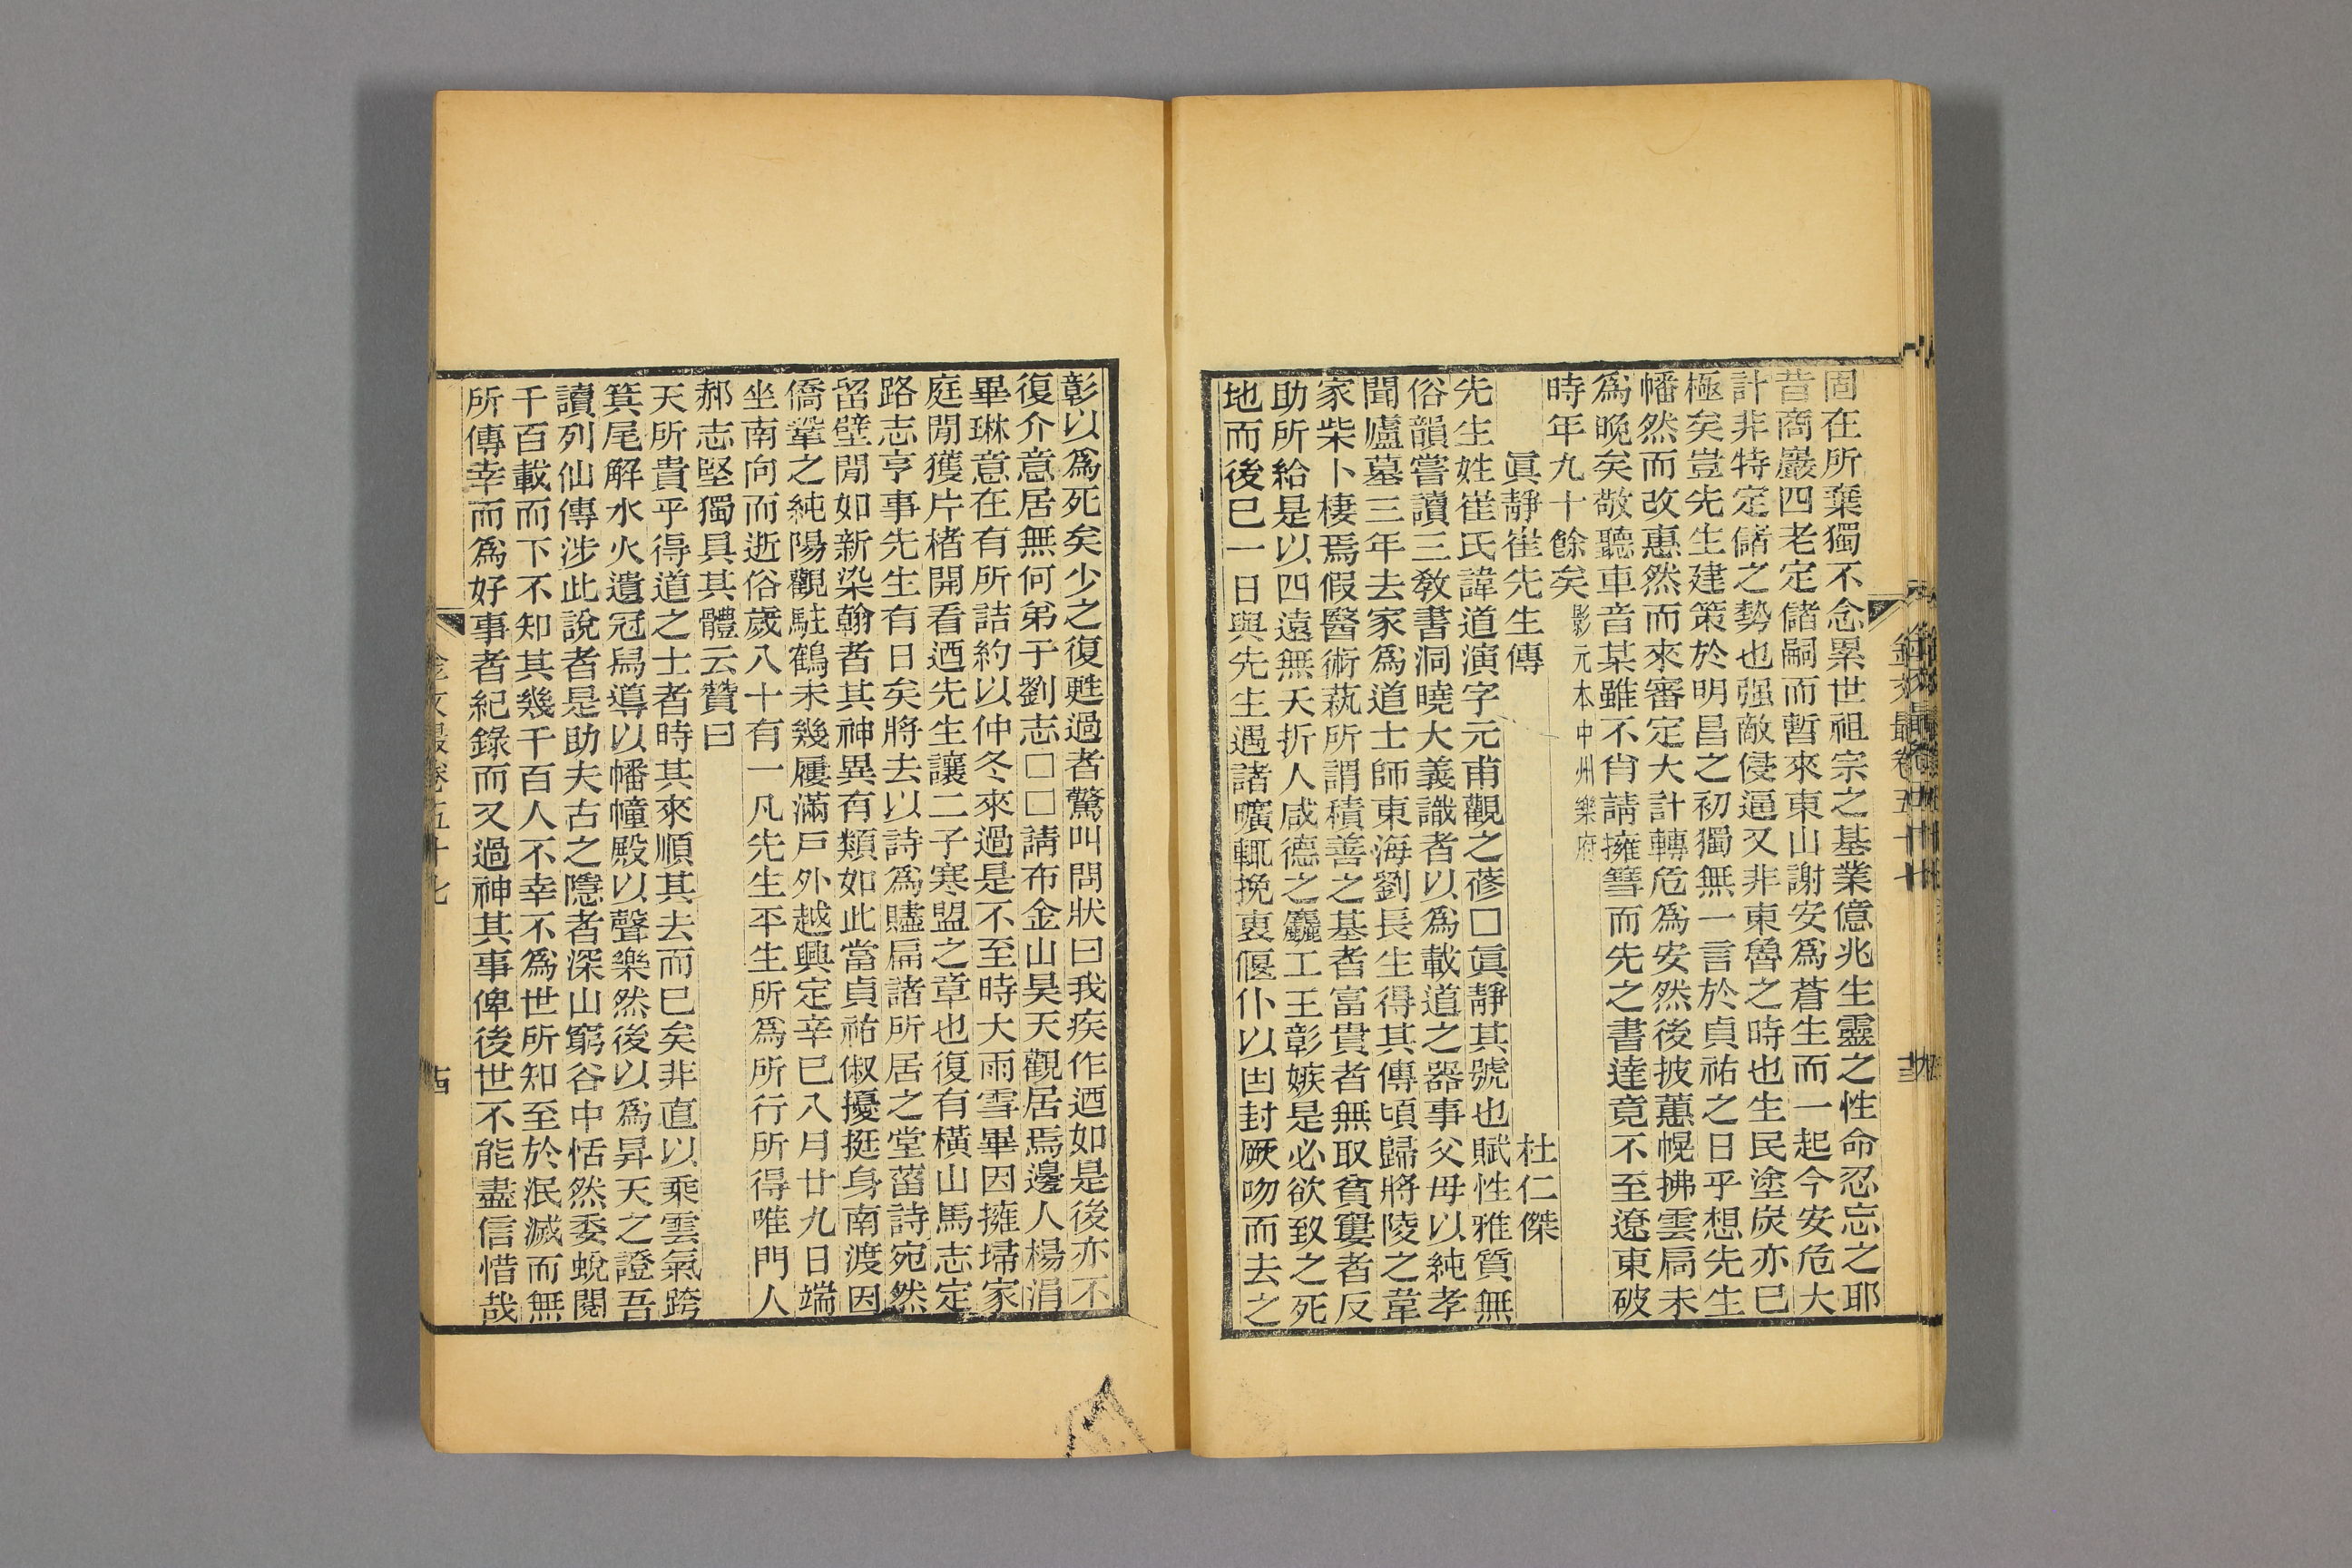 固在所棄獨不念累世祖宗之基業億兆生靈之性命忍忘之耶
昔商巖四老定儲嗣而暫來東山謝安爲蒼生而一起今安危大
計非特定儲之勢也强敵侵逼又非東魯之時也生民塗炭亦已
極矣豈先生建策於明昌之初獨無一言於貞祐之日乎想先生
幡然而改惠然而來審定大計轉危爲安然後披蕙幌拂雲扃未
爲晚矣敬聽車音某雖不肖請擁篲而先之書達竟不至遼東破
時年九十餘矣影元本中州樂府
眞靜崔先生傳
杜仁傑
先生姓崔氏諱道演字元甫觀之蓚□眞靜其號也賦性雅質無
俗韻嘗讀三敎書洞曉大義識者以爲載道之器事父母以純孝
聞廬墓三年去家爲道士師東海劉長生得其傳頃歸將陵之韋
家柴卜棲焉假醫術蓺所謂積善之基者富貴者無取貧窶者反
助所給是以四遠無夭折人咸德之麤工王彰嫉是必欲致之死
地而後已一日與先生遇諸曠輒挽裏偃仆以凷封厥吻而去之
彰以爲死矣少之復甦過者驚叫問狀曰我疾作迺如是後亦不
復介意居無何弟子劉志□□請布金山昊天觀居焉邊人楊涓
畢琳意在有所詰約以仲冬來過是不至時大雨雪畢因擁埽家
庭閒獲片楮開看迺先生讓二子寒盟之章也復有橫山馬志定
路志亨事先生有日矣將去以詩爲贐扃諸所居之堂蓄詩宛然
留壁閒如新染翰者其神異有類如此當貞祐俶擾挺身南渡因
僑鞏之純陽觀駐鶴未幾屨滿戶外越興定辛巳八月廿九日端
坐南向而逝俗歲八十有一凡先生平生所爲所行所得唯門人
郝志堅獨具其體云贊曰
天所貴乎得道之士者時其來順其去而已矣非直以乘雲氣跨
箕尾解水火遺冠舄導以幡幢殿以聲樂然後以爲昇天之證吾
讀列仙傳涉此說者是助夫古之隱者深山窮谷中恬然委蛻閱
千百載而下不知其幾千百人不幸不爲世所知至於泯滅而無
所傳幸而爲好事者紀錄而又過神其事俾後世不能盡信惜哉
金文最卷五十七